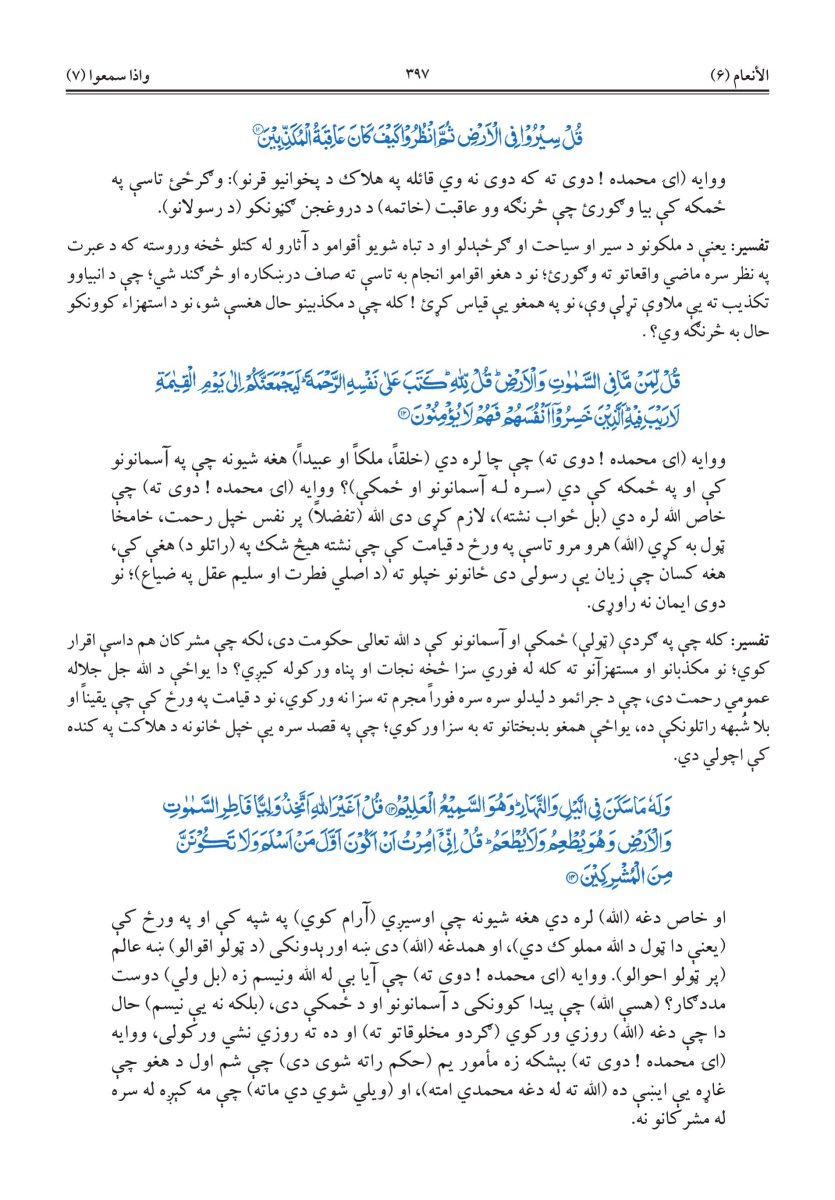 الأنعام (۶) ۳۹۷ واذا سمعوا (۷)
قُلْ سِيْرُوْا فِى الْاَرْضِ ثُمَّ انْظُرُوْا كَيْفَ كَانَ عَاقِبَةُ الْمُكَذِّبِيْنَ ⑪
ووايه (اې محمده ! دوى ته كه دوى نه وي قائله په هلاك د پخوانيو قرنو): وګرځئ تاسې په
ځمكه كې بيا وګورئ چې څرنګه وو عاقبت (خاتمه) د دروغجن ګڼونكو (د رسولانو).
تفسير: يعنې د ملكونو د سير او سياحت او ګرځېدلو او د تباه شويو أقوامو د آثارو له كتلو څخه وروسته كه د عبرت
په نظر سره ماضي واقعاتو ته وګورئ؛ نو د هغو اقوامو انجام به تاسې ته صاف درښكاره او څرګند شي؛ چې د انبياوو
تكذيب ته يې ملاوې تړلې وې، نو په همغو يې قياس كړئ ! كله چې د مكذبينو حال هغسې شو، نو د استهزاء كوونكو
حال به څرنګه وي؟ .
قُلْ لِّمَنْ مَّا فِى السَّمٰوٰتِ وَالْاَرْضِ ؕ قُلْ لِّلّٰهِ ؕ كَتَبَ عَلٰى نَفْسِهِ الرَّحْمَةَ ؕ لَيَجْمَعَنَّكُمْ اِلٰى يَوْمِ الْقِيٰمَةِ
لَا رَيْبَ فِيْهِ ؕ اَلَّذِيْنَ خَسِرُوْۤا اَنْفُسَهُمْ فَهُمْ لَا يُؤْمِنُوْنَ ⑫
ووايه (اې محمده ! دوى ته) چې چا لره دي (خلقاً، ملكاً او عبيداً) هغه شيونه چې په آسمانونو
كې او په ځمكه كې دي (سره له آسمانونو او ځمكې)؟ ووايه (اې محمده ! دوى ته) چې
خاص الله لره دي (بل ځواب نشته)، لازم كړى دى الله (تفضلاً) پر نفس خپل رحمت، خامخا
ټول به كړي (الله) هرو مرو تاسې په ورځ د قيامت كې چې نشته هيڅ شك په (راتلو د) هغې كې،
هغه كسان چې زيان يې رسولى دى ځانونو خپلو ته (د اصلي فطرت او سليم عقل په ضياع)؛ نو
دوى ايمان نه راوړي.
تفسير: كله چې په ګردې (ټولې) ځمكې او آسمانونو كې د الله تعالى حكومت دى، لكه چې مشركان هم داسې اقرار
كوي؛ نو مكذبانو او مستهزآنو ته كله له فوري سزا څخه نجات او پناه وركوله كيږي؟ دا يواځې د الله جل جلاله
عمومي رحمت دى، چې د جرائمو د ليدلو سره سره فوراً مجرم ته سزا نه وركوي، نو د قيامت په ورځ كې چې يقيناً او
بلا شُبهه راتلونكې ده، يواځې همغو بدبختانو ته به سزا وركوي؛ چې په قصد سره يې خپل ځانونه د هلاكت په كنده
كې اچولي دي.
وَلَهٗ مَا سَكَنَ فِى الَّيْلِ وَالنَّهَارِ ؕ وَهُوَ السَّمِيْعُ الْعَلِيْمُ ⑬ قُلْ اَغَيْرَ اللّٰهِ اَتَّخِذُ وَلِيًّا فَاطِرِ السَّمٰوٰتِ
وَالْاَرْضِ وَهُوَ يُطْعِمُ وَلَا يُطْعَمُ ؕ قُلْ اِنِّىْۤ اُمِرْتُ اَنْ اَكُوْنَ اَوَّلَ مَنْ اَسْلَمَ وَلَا تَكُوْنَنَّ
مِنَ الْمُشْرِكِيْنَ ⑭
او خاص دغه (الله) لره دي هغه شيونه چې اوسيږي (آرام كوي) په شپه كې او په ورځ كې
(يعنې دا ټول د الله مملوك دي)، او همدغه (الله) دى ښه اورېدونكى (د ټولو اقوالو) ښه عالم
(پر ټولو احوالو). ووايه (اې محمده ! دوى ته) چې آيا بې له الله ونيسم زه (بل ولي) دوست
مددګار؟ (هسې الله) چې پيدا كوونكى د آسمانونو او د ځمكې دى، (بلكه نه يې نيسم) حال
دا چې دغه (الله) روزي وركوي (ګردو مخلوقاتو ته) او ده ته روزي نشي وركولى، ووايه
(اې محمده ! دوى ته) بېشكه زه مأمور يم (حكم راته شوى دى) چې شم اول د هغو چې
غاړه يې ايښې ده (الله ته له دغه محمدي امته)، او (ويلي شوي دي ماته) چې مه كېږه له سره
له مشركانو نه.